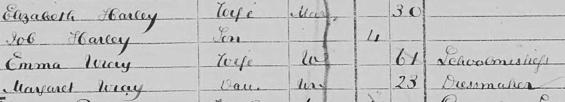 Elizabeth Harley Wife Mar 30
Job Harley Son 4
Emma Wray Wife W 61 Schoolmistress
Margaret Wray Dau Un 23 Dressmaker